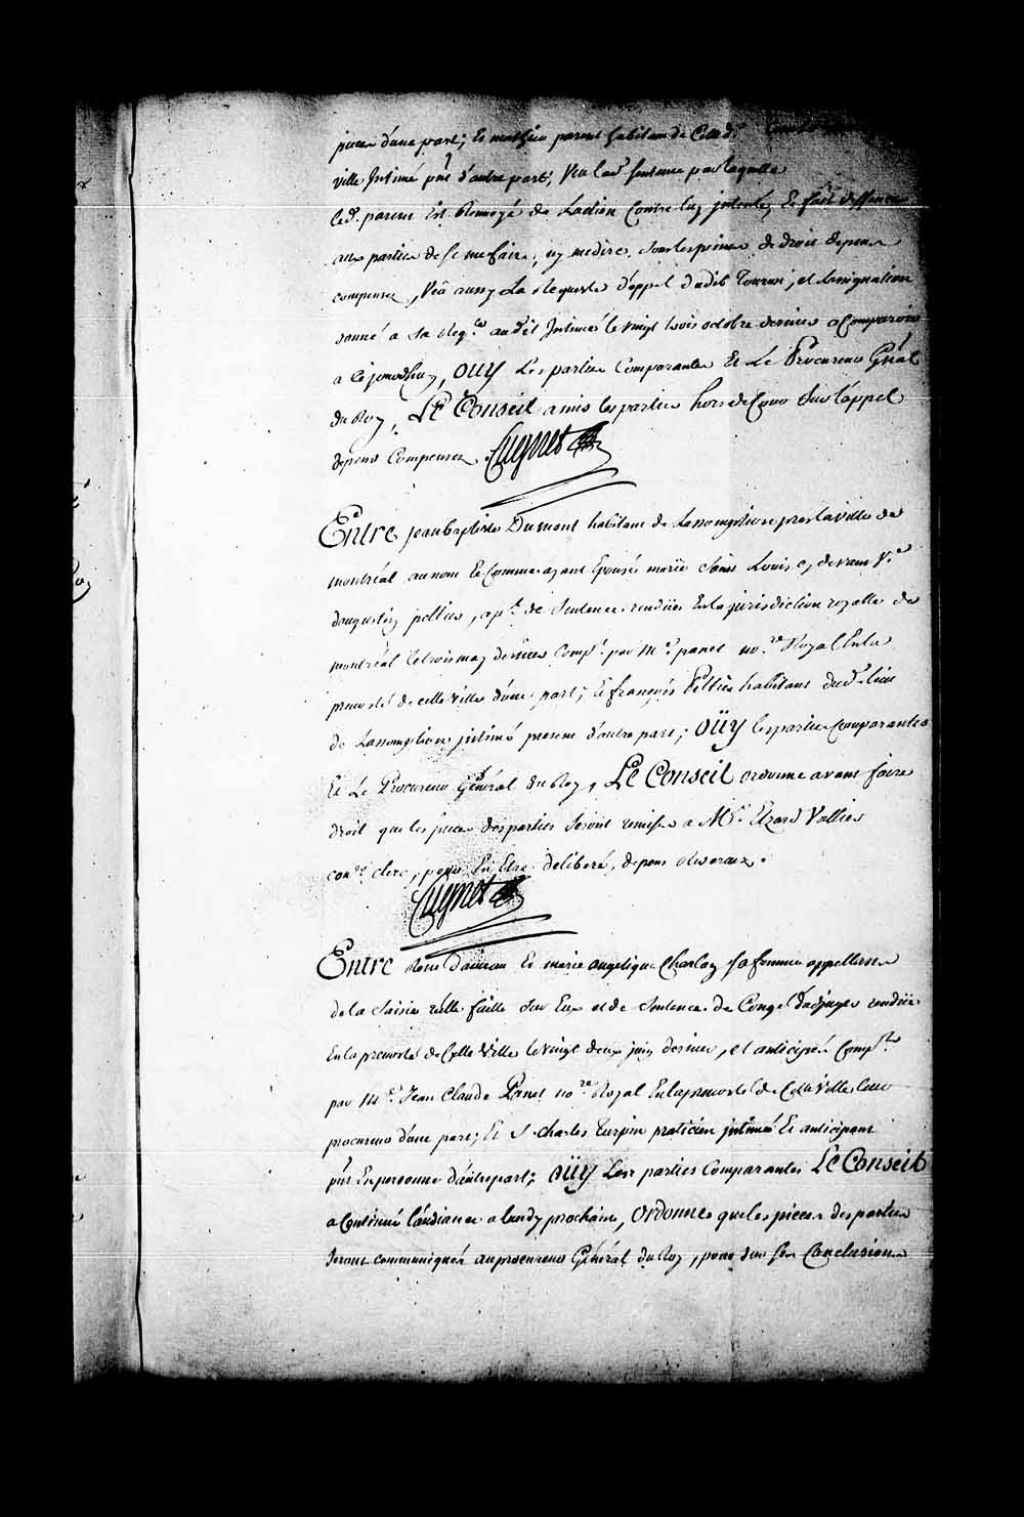 d'une part; Et mathieu parent habitan de Cette d.
ville Intimé pnt. d'autre part; Veu lad. sentence par laquelle
Led. parent Est Renvoyé de Laction Contre luy Intentée, Et fait deffences
aux parties de se meffaire, ny medire, sous les peines de droit depens
compensez, Veû aussy La Requeste d'appel dudit, et Lassignation
donné a sa Req.te audit Intimé le vingt trois octobre dernier a Comparoir
a Ce jourdhuy, OUY Les parties Comparantes Et Le Procureur Gñal
du Roy, LE Conseil a mis les parties hors de Cour Sur l'appel
depens Compensez. Cugnet
Entre jean baptiste Dumont habitant de Lassomption pres la ville de
montréal au nom Et Comme ayant Epousé marie Saint Louis, cy devant V.e
daugustin peltier, ap.t de Sentence rendüe En la jurisdiction royalle de
montréal le trois may dernier Comp.t par M.e panet no.re Royal En la
prevosté de cette ville d'une part; Et françois Peltier habitant dud. lieu
de Lassomption intimé present d'autre part; OÜY les parties Comparantes
Et Le Procureur Général du Roy, Le Conseil ordonne avant faire
droit que les pieces des parties seront remises a M.e Elzard Vallier
con.er clerc, pour En Etre deliberé, depens Reservez.
Cugnet
Entre René Et marie angelique Charlay sa femme appellans
de la Saisie réelle faitte sur Eux et de Sentence de Congé d'adjuger rendüe
En la prevosté de Cette Ville le vingt deux juin dernier, et anticipés Comp.ts
par M.e Jean Claude Panet no.re Royal En la prevosté de Cette ville leur
procureur d'une part; Et S. Charles Turpin praticien intimé Et anticipant
pnt En personne d'autre part; OÜY Les parties Comparantes LE Conseil
a Continué l'audiance a lundy prochain, Ordonne que les pieces des parties
seront communiquées au procureur Général du Roy, pour sur ses Conclusions